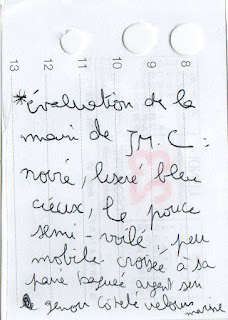 13 12 11 10 9 8
*évaluation de la
main de J.M.C :
noire, liseré bleu
cieux, le pouce
semi-voilé, peu
mobile croisée à sa
paire baguée argent sur
le genou côtelé velours
marine